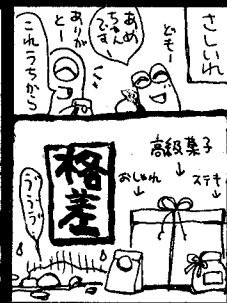 さしいれ
どもー
あめ
ちゃん
です
ありが
とー
これうちから
高級菓子
ステキ
おしゃれ
格差
うううう